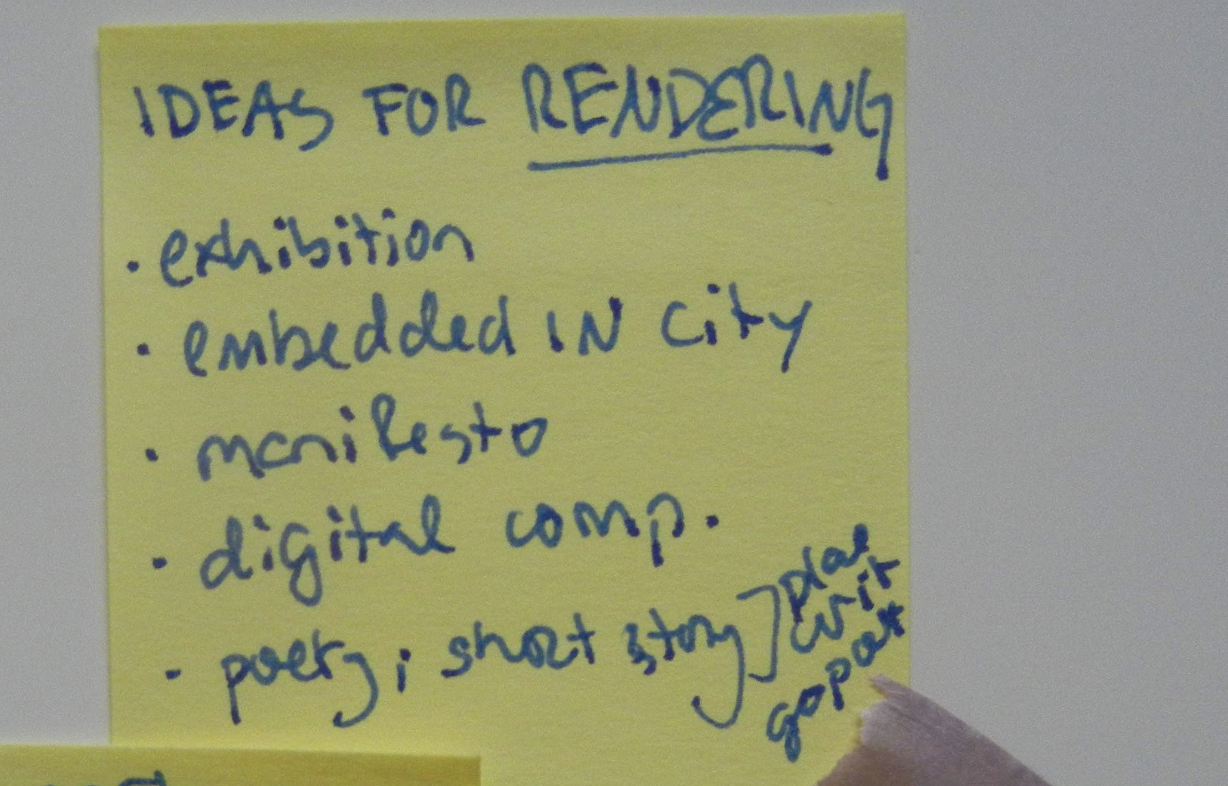 IDEAS FOR RENDERING
· exhibition
· embedded IN city
· manifesto
· digital comp.
· poetry; short story]